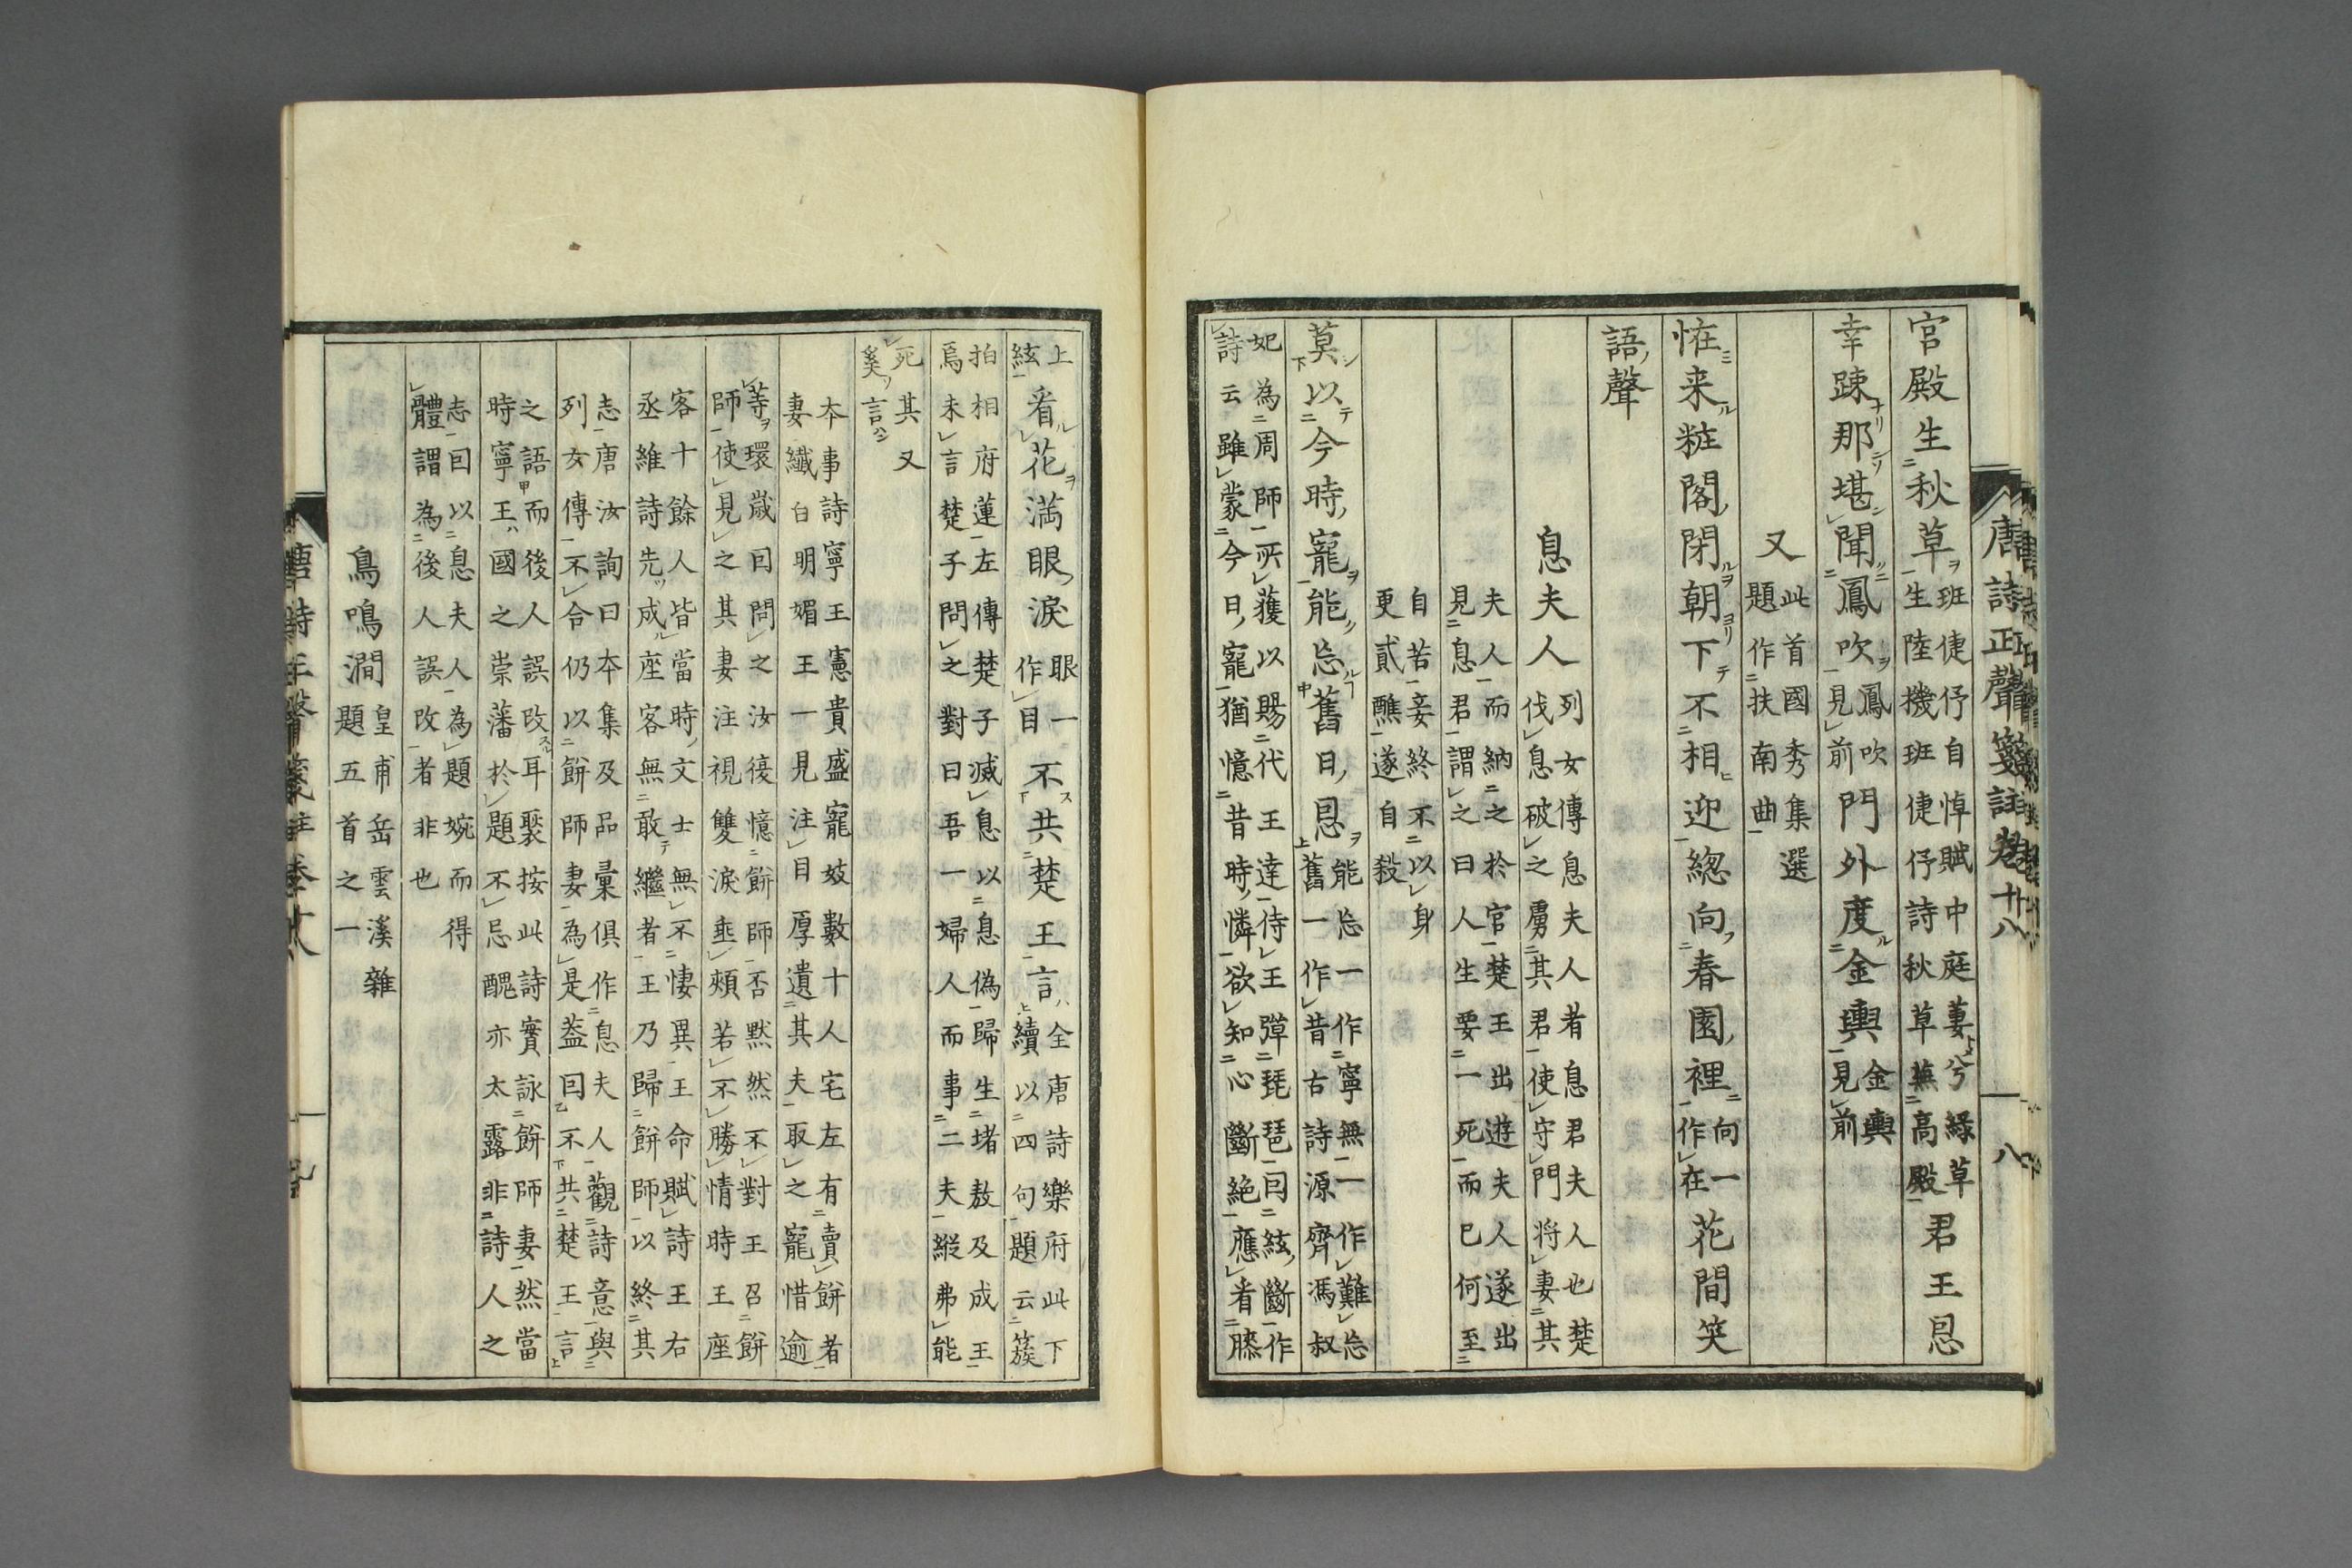 唐詩正聲箋註卷十八　八
宮殿生秋草
班倢伃自悼賦中庭萋兮綠草
生陸機班倢伃詩秋草蕪高殿
君王恩
幸疎那堪聞鳳吹
鳳吹
見前
門外度金輿
金輿
見前
又
此首國秀集選
題作扶南曲
恠来粧閣閉朝下不相迎緫向春園裡
向一
作在
花間笑
語聲
息夫人
列女傳息夫人者息君夫人也楚
伐息破之虜其君使守門将妻其
夫人而納之於宮楚王出遊夫人遂出
見息君謂之曰人生要一死而已何至
自苦妾終不以身
更貳醮遂自殺
莫以今時寵能忘舊日恩
能忘一作寧無一作難忘
舊一作昔古詩源齊馮叔
妃為周師所獲以賜代王達侍王彈琵琶因絃斷作
詩云雖蒙今日寵猶憶昔時憐欲知心斷絶應看膝
上
絃
看花滿眼淚
眼一
作目
不共楚王言
全唐詩樂府此下
續以四句題云簇
拍相府蓮左傳楚子滅息以息偽歸生堵敖及成王
焉未言楚子問之對曰吾一婦人而事二夫縱弗能
死其又
奚言
本事詩寧王憲貴盛寵妓數十人宅左有賣餅者
妻纖白明媚王一見注目厚遺其夫取之寵惜逾
等環歲因問之汝復憶餅師否默然不對王召餅
師使見之其妻注視雙淚垂頰若不勝情時王座
客十餘人皆當時文士無不悽異王命賦詩王右
丞維詩先成座客無敢繼者王乃歸餅師以終其
志唐汝詢曰本集及品彙俱作息夫人觀詩意與
列女傳不合仍以餅師妻為是蓋因不共楚王言
之語而後人誤改耳聚按此詩實詠餅師妻然當
時寧王國之崇藩於題不忌醜亦太露非詩人之
志因以息夫人為題婉而得
體謂為後人誤改者非也
鳥鳴澗
皇甫岳雲溪雜
題五首之一
唐詩正聲箋註卷十八　九